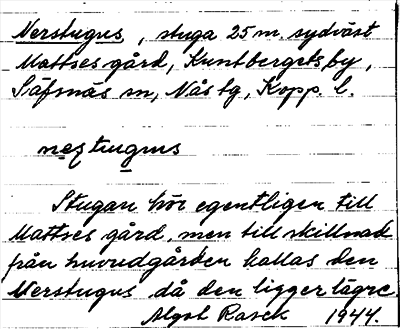 Nerstugus, stuga 25 m. sydväst
Mattses gård, Kuntbergets by,
Säfsnäs sn, Nås tg, Kopp. l.
Stugan hör egentligen till
Mattses gård, men till skillnad
från huvudgården kallas den
Nerstugus då den ligger lägre.
Algot Rasck 1944.